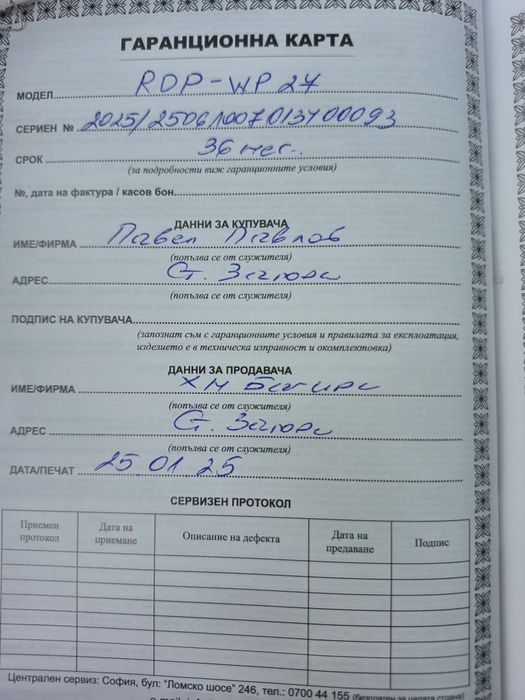 ГАРАНЦИОННА КАРТА
МОДЕЛ RDP-WP 27
СЕРИЕН № 2025/25061007013400093
СРОК 36 мес.
(за подробности виж гаранционните условия)
№, дата на фактура / касов бон
ДАННИ ЗА КУПУВАЧА
ИМЕ/ФИРМА Павел Павлов
(попълва се от служителя)
АДРЕС Ст. Загора
(попълва се от служителя)
ПОДПИС НА КУПУВАЧА
(запознат съм с гаранционните условия и правилата за експлоатация,
изделието е в техническа изправност и окомплектовка)
ДАННИ ЗА ПРОДАВАЧА
ИМЕ/ФИРМА ХМ Багира
(попълва се от служителя)
АДРЕС Ст. Загора
(попълва се от служителя)
ДАТА/ПЕЧАТ 25 01 25
СЕРВИЗЕН ПРОТОКОЛ
Приемен протокол Дата на приемане Описание на дефекта Дата на предаване Подпис
Централен сервиз: София, бул: "Ломско шосе" 246, тел.: 0700 44 155 (безплатен за цялата страна)